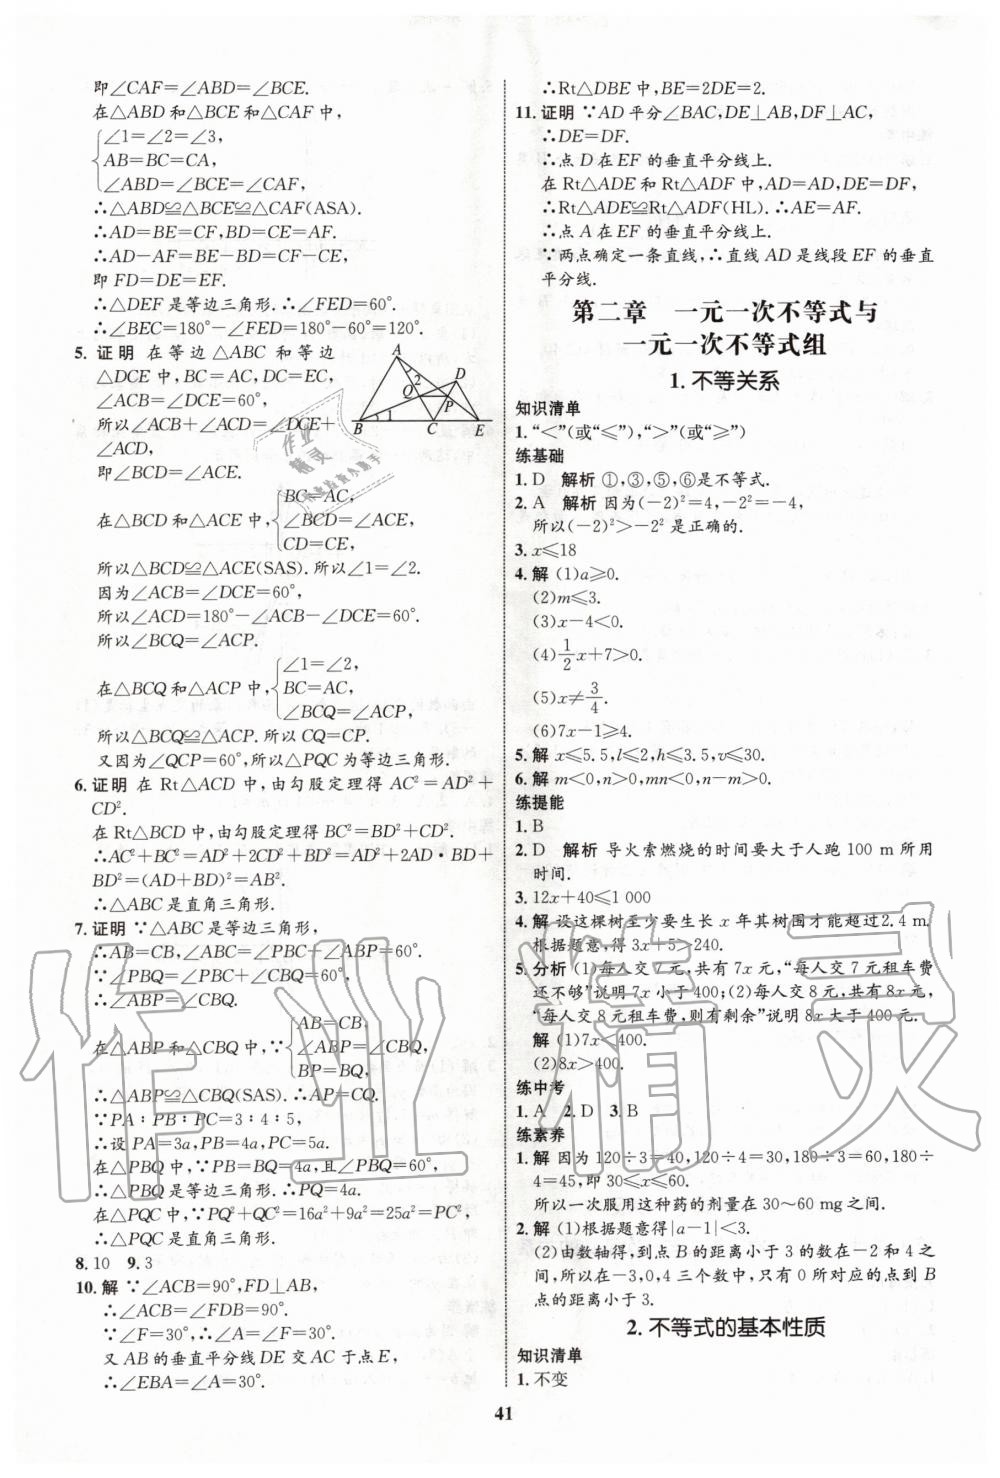 即∠CAF=∠ABD=∠BCE.
在△ABD和△BCE和△CAF中，
∠1=∠2=∠3,
AB=BC=CA,
∠ABD=∠BCE=∠CAF,
∴△ABD≌△BCE≌△CAF(ASA).
∴AD=BE=CF,BD=CE=AF.
∴AD-AF=BE-BD=CF-CE.
即 FD=DE=EF.
∴△DEF是等边三角形.∴∠FED=60°.
∴∠BEC=180°-∠FED=180°-60°=120°.
5. 证明 在等边△ABC 和等边
△DCE中,BC=AC,DC=EC,
∠ACB=∠DCE=60°,
所以∠ACB+∠ACD=∠DCE+
∠ACD,
即∠BCD=∠ACE.
在△BCD和△ACE中,
BC=AC,
∠BCD=∠ACE,
CD=CE,
所以△BCD≌△ACE(SAS).所以∠1=∠2.
因为∠ACB=∠DCE=60°,
所以∠ACD=180°-∠ACB-∠DCE=60°.
所以∠BCQ=∠ACP.
在△BCQ和△ACP中,
∠1=∠2,
BC=AC,
∠BCQ=∠ACP,
所以△BCQ≌△ACP.所以CQ=CP.
又因为∠QCP=60°,所以△PQC为等边三角形.
A
D
2
Q
P
1
B
C
E
6. 证明 在 Rt△ACD 中,由勾股定理得 AC²=AD²+
CD².
在 Rt△BCD 中,由勾股定理得 BC²=BD²+CD².
∴AC²+BC²=AD²+2CD²+BD²=AD²+2AD·BD+
BD²=(AD+BD)²=AB².
∴△ABC是直角三角形.
7. 证明 ∵△ABC是等边三角形,
∴AB=CB,∠ABC=∠PBC+∠ABP=60°.
∵∠PBQ=∠PBC+∠CBQ=60°,
∴∠ABP=∠CBQ.
在△ABP和△CBQ中,∵
AB=CB,
∠ABP=∠CBQ,
BP=BQ,
∴△ABP≌△CBQ(SAS).∴AP=CQ.
∵PA∶PB∶PC=3∶4∶5,
∴设 PA=3a,PB=4a,PC=5a.
在△PBQ中,∵PB=BQ=4a,且∠PBQ=60°,
∴△PBQ是等边三角形.∴PQ=4a.
在△PQC中,∵PQ²+QC²=16a²+9a²=25a²=PC²,
∴△PQC是直角三角形.
8. 10 9. 3
10. 解 ∵∠ACB=90°,FD⊥AB,
∴∠ACB=∠FDB=90°.
∵∠F=30°,∴∠A=∠F=30°.
又 AB 的垂直平分线 DE 交 AC 于点 E,
∴∠EBA=∠A=30°.
∴Rt△DBE中,BE=2DE=2.
11. 证明 ∵AD平分∠BAC,DE⊥AB,DF⊥AC,
∴DE=DF.
∴点 D 在 EF 的垂直平分线上.
在 Rt△ADE 和 Rt△ADF 中,AD=AD,DE=DF,
∴Rt△ADE≌Rt△ADF(HL).∴AE=AF.
∴点 A 在 EF 的垂直平分线上.
∵两点确定一条直线,∴直线 AD 是线段 EF 的垂直
平分线.
第二章 一元一次不等式与
一元一次不等式组
1. 不等关系
知识清单
1. “<”(或“≤”),“>”(或“≥”)
练基础
1. D 解析 ①,③,⑤,⑥是不等式.
2. A 解析 因为(-2)²=4,-2²=-4,
所以(-2)²>-2² 是正确的.
3. x≤18
4. 解 (1)a≥0.
(2)m≤3.
(3)x-4<0.
(4)1/2x+7>0.
(5)x≠3/4.
(6)7x-1≥4.
5. 解 x≤5.5,l≤2,h≤3.5,v≤30.
6. 解 m<0,n>0,mn<0,n-m>0.
练提能
1. B
2. D 解析 导火索燃烧的时间要大于人跑 100 m 所用
时间.
3. 12x+40≤1 000
4. 解 设这棵树至少要生长 x 年其树围才能超过2.4 m.
根据题意,得 3x+5>240.
5. 分析 (1)每人交7元,共有 7x 元,“每人交 7 元租车费
还不够”说明 7x 小于400;(2)每人交8元,共有8x元,
“每人交 8 元租车费,则有剩余”说明 8x 大于 400 元.
解 (1)7x<400.
(2)8x>400.
练中考
1. A 2. D 3. B
练素养
1. 解 因为 120÷3=40,120÷4=30,180÷3=60,180÷
4=45,即 30≤x≤60.
所以一次服用这种药的剂量在 30~60 mg之间.
2. 解 (1)根据题意得|a-1|<3.
(2)由数轴得,到点 B 的距离小于 3 的数在-2 和 4 之
间,所以在-3,0,4 三个数中,只有 0 所对应的点到 B
点的距离小于 3.
2. 不等式的基本性质
知识清单
1. 不变
41
作业精灵